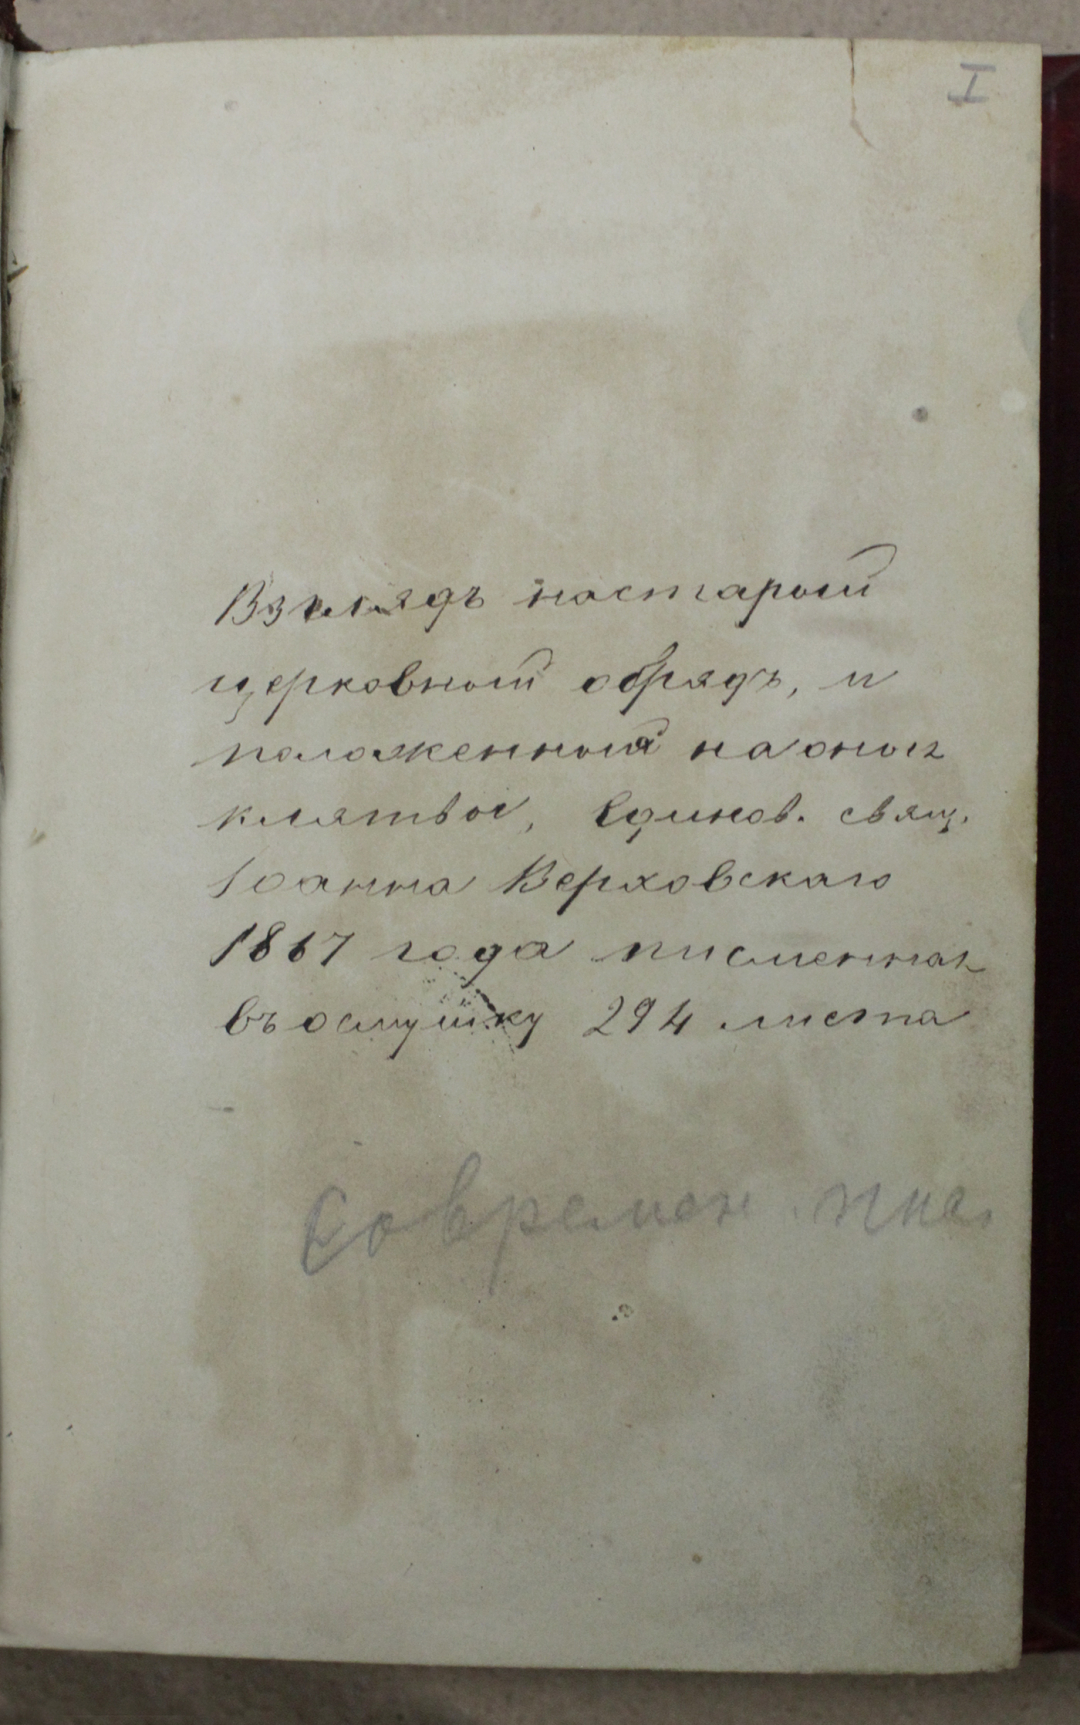 I
Взглядъ настарый
церковный обрядъ, и
положенныя на оныя
клятвы, Единов. свящ.
Iоанна Верховскаго
1867 года писменная
въ осмушку 294 листа
Современ.